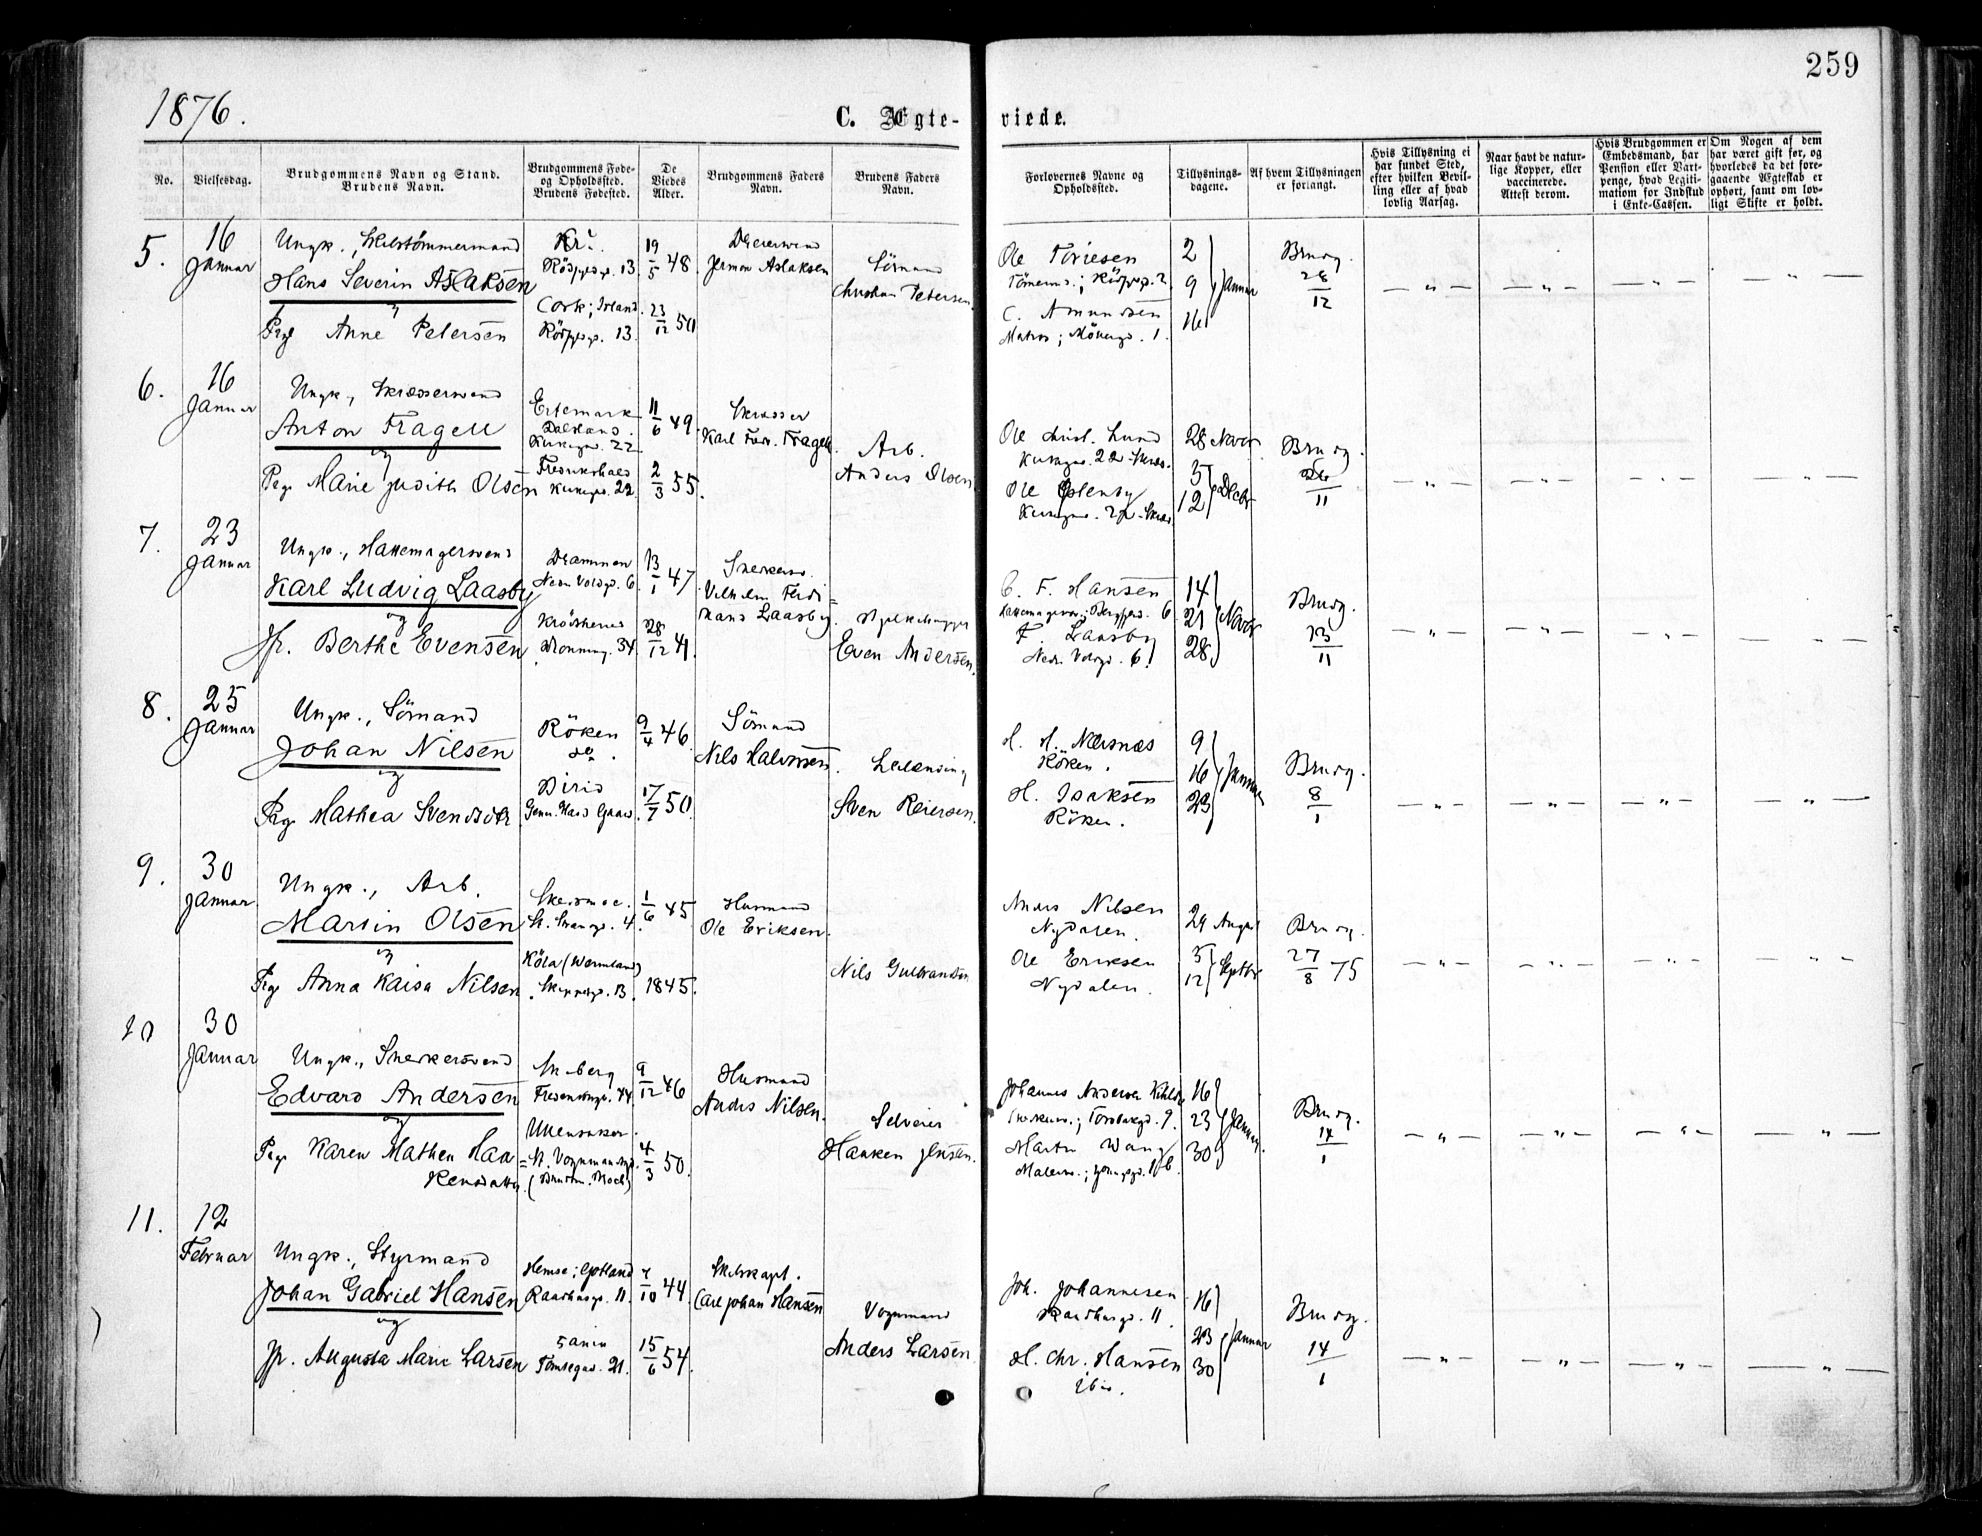 259
1876.
C. Ægte-
viede.
No.
Vielsesdag.
Brudgommens Navn og Stand.
Brudens Navn.
Brudgommens Føde-
og Opholdssted.
Brudens Fødested.
De
Viedes
Alder.
Brudgommens Faders
Navn.
Brudens Faders
Navn.
Forlovernes Navne og
Opholdssted.
Tillysnings-
dagene.
Af hvem Tillysningen
er forlangt.
Hvis Tillysning ei
har fundet Sted,
efter hvilken Bevil-
ling eller af hvad
lovlig Aarsag.
Naar havt de natur-
lige Kopper, eller
vaccinerede.
Attest derom.
Hvis Brudgommen er
Embedsmand, har
Pension eller Vart-
penge, hvad Legiti-
mation for Indskud
i Enke-Cassen.
Om Nogen af dem
har været gift før, og
hvorledes da det fore-
gaaende Ægteskab er
ophørt, samt om lov-
ligt Skifte er holdt.
5.
16
Januar
Ungk., Skibstömmermand
Hans Severin Aslaksen
og
Pige Anne Petersen
13
Cork; Irland
13
19/5 48
23/12 50
Aslaksen
Sömand
Christian Petersen
Ole
C. Amundsen
Matros;
2
9
16
Januar
Brudg.
28/12
6.
16
Januar
Ungk., Skræddersvend
Anton Fragell
og
Pige Marie Judith Olsen
Ertemark
Dalsland.
Kirkegd. 22
Fredrikshald
Kirkegd. 22
11/6 49.
2/3 55.
Skrædder
Karl Fragell
Arb.
Anders Olsen
Ole Christ. Lund
Ole
28 Novbr
5
12
Decbr
Brudg.
11
7.
23
Januar
Ungk., Hattemagersvend
Karl Ludvig Laasby
og
Jfr. Berthe Evensen
Drammen
Nedr Voldgd. 6.
Dronning. 34
13/1 47
28/12 41.
Snekkersv.
Vilhelm Ferdi=
nand Laasby.
Even Andersen.
C. F. Hansen
F. Laasby
Nedr. Voldgd. 6.
14
21
28
Novbr
Brudg.
13/11
8.
25
Januar
Ungk., Sömand
Johan Nilsen
og
Pige Mathea Svendsdtr
Röken
do.
Biri
9/4 46
17/7 50.
Sömand
Nils Halvorsen
Sven Reiersen.
H. H. Nærsnæs
Röken.
H. Isaksen
Röken.
9
16
23
Januar
Brudg.
8/1
9.
30
Januar
Ungk., Arb.
Martin Olsen
og
Pige Anna Kaisa Nilsen
Skedsmoe.
4.
Köla (Wermland)
13.
1/6 45
1845.
Husmand
Ole Eriksen.
Nils Gulbrandsen
Anders Nilsen
Nydalen.
Ole Eriksen
Nydalen.
29 August
5
12
Septbr
Brudg.
27/8 75
10
30
Januar
Ungk., Snekkersvend
Edvard Andersen
og
Pige Karen Mathea Haa=
kensdatter
Ullensaker.
9/12 46
4/3 50.
Husmand
Anders Nilsen.
Selveier
Haaken Jensen.
Johannes Andersen
Martin Wang
16
23
30
Januar
Brudg.
14/1
11.
12
Februar
Ungk., Styrmand
Johan Gabriel Hansen
og
Jfr. Augusta Marie Larsen
Hemse; Gotland
Raadhusgd. 11.
Tomtegad. 21.
7/10 44
15/6 54.
Skibskapt.
Carl Johan Hansen
Vognmand
Anders Larsen
Joh. Johannesen
Raadhusgd. 11.
H. Chr. Hansen
ibid.
16
23
30
Januar
Brudg.
14/1